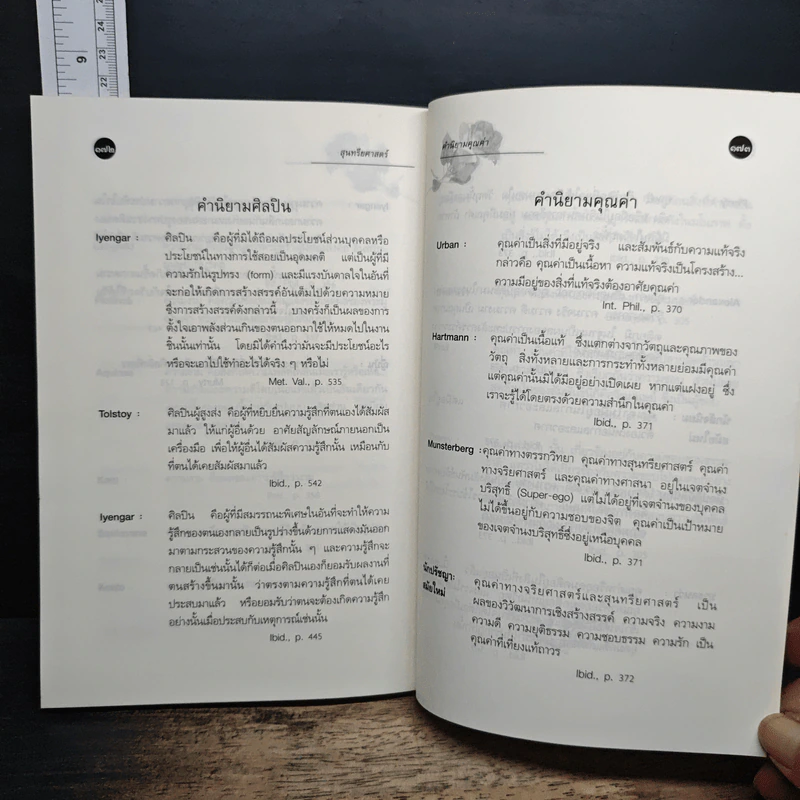 ๑๗๒
สุนทรียศาสตร์
คำนิยามศิลปิน
Iyengar : ศิลปิน คือผู้ที่มิได้ถือผลประโยชน์ส่วนบุคคลหรือ
ประโยชน์ในทางการใช้สอยเป็นอุดมคติ แต่เป็นผู้ที่มี
ความรักในรูปทรง (form) และมีแรงบันดาลใจในอันที่
จะก่อให้เกิดการสร้างสรรค์อันเต็มไปด้วยความหมาย
ซึ่งการสร้างสรรค์ดังกล่าวนี้ บางครั้งก็เป็นผลของการ
ตั้งใจเอาพลังส่วนเกินของตนออกมาใช้ให้หมดไปในงาน
ชิ้นนั้นเท่านั้น โดยมิได้คำนึงว่ามันจะมีประโยชน์อะไร
หรือจะเอาไปใช้ทำอะไรได้จริง ๆ หรือไม่
Met. Val., p. 535
Tolstoy : ศิลปินผู้สูงส่ง คือผู้ที่หยิบยื่นความรู้สึกที่ตนเองได้สัมผัส
มาแล้ว ให้แก่ผู้อื่นด้วย อาศัยสัญลักษณ์ภายนอกเป็น
เครื่องมือ เพื่อให้ผู้อื่นได้สัมผัสความรู้สึกนั้น เหมือนกับ
ที่ตนได้เคยสัมผัสมาแล้ว
Ibid., p. 542
Iyengar : ศิลปิน คือผู้ที่มีสมรรถนะพิเศษในอันที่จะทำให้ความ
รู้สึกของตนเองกลายเป็นรูปร่างขึ้นด้วยการแสดงมันออก
มาตามกระสวนของความรู้สึกนั้น ๆ และความรู้สึกจะ
กลายเป็นเช่นนั้นได้ก็ต่อเมื่อศิลปินเองก็ยอมรับผลงานที่
ตนสร้างขึ้นมานั้น ว่าตรงตามความรู้สึกที่ตนได้เคย
ประสบมาแล้ว หรือยอมรับว่าตนจะต้องเกิดความรู้สึก
อย่างนั้นเมื่อประสบกับเหตุการณ์เช่นนั้น
Ibid., p. 445
คำนิยามคุณค่า
๑๗๓
คำนิยามคุณค่า
Urban : คุณค่าเป็นสิ่งที่มีอยู่จริง และสัมพันธ์กับความแท้จริง
กล่าวคือ คุณค่าเป็นเนื้อหา ความแท้จริงเป็นโครงสร้าง...
ความมีอยู่ของสิ่งที่แท้จริงต้องอาศัยคุณค่า
Int. Phil., p. 370
Hartmann : คุณค่าเป็นเนื้อแท้ ซึ่งแตกต่างจากวัตถุและคุณภาพของ
วัตถุ สิ่งทั้งหลายและการกระทำทั้งหลายย่อมมีคุณค่า
แต่คุณค่านั้นมิได้มีอยู่อย่างเปิดเผย หากแต่แฝงอยู่ ซึ่ง
เราจะรู้ได้โดยตรงด้วยความสำนึกในคุณค่า
Ibid., p. 371
Munsterberg : คุณค่าทางตรรกวิทยา คุณค่าทางสุนทรียศาสตร์ คุณค่า
ทางจริยศาสตร์ และคุณค่าทางศาสนา อยู่ในเจตจำนง
บริสุทธิ์ (Super-ego) แต่ไม่ได้อยู่ที่เจตจำนงของบุคคล
ไม่ได้ขึ้นอยู่กับความชอบของจิต คุณค่าเป็นเป้าหมาย
ของเจตจำนงบริสุทธิ์ซึ่งอยู่เหนือบุคคล
Ibid., p. 371
นักปรัชญา:
สมัยใหม่ คุณค่าทางจริยศาสตร์และสุนทรียศาสตร์ เป็น
ผลของวิวัฒนาการเชิงสร้างสรรค์ ความจริง ความงาม
ความดี ความยุติธรรม ความชอบธรรม ความรัก เป็น
คุณค่าที่เที่ยงแท้ถาวร
Ibid., p. 372
9
24
23
22